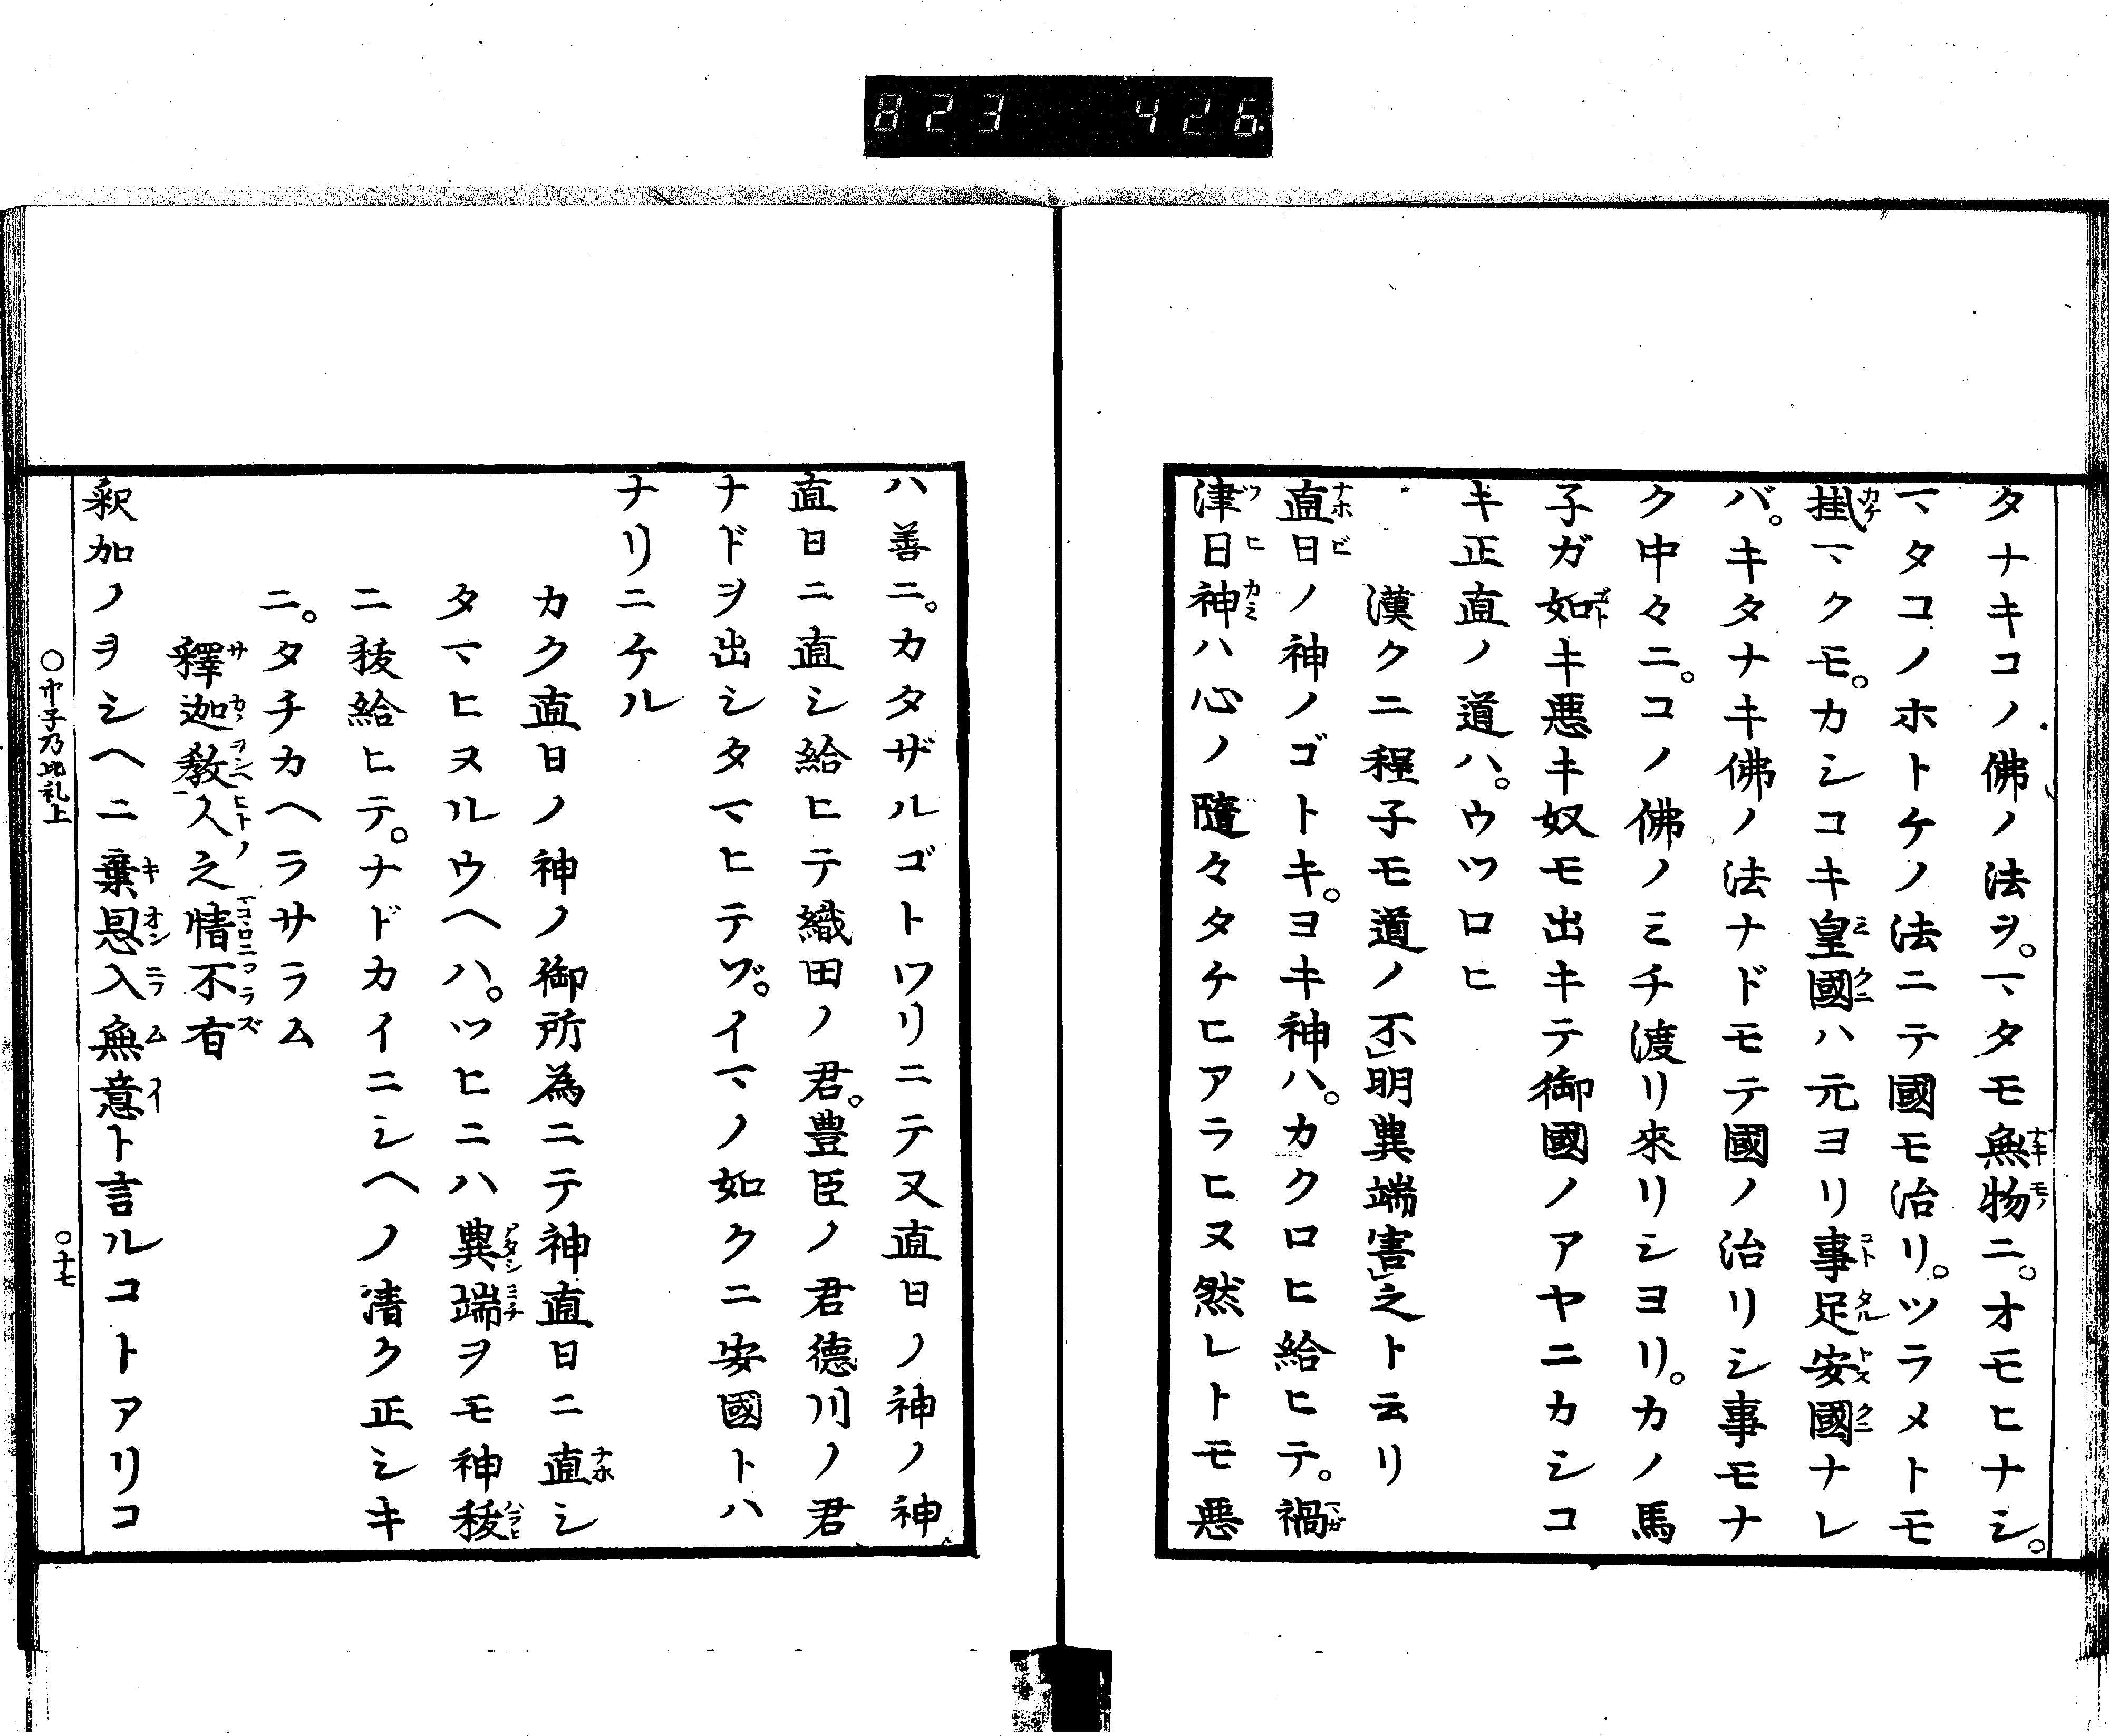 823 426
タナキコノ佛ノ法ヲ。マタモ無物ニ。オモヒナシ。
マタコノホトケノ法ニテ國モ治リ。ツラメトモ
掛マクモ。カシコキ皇國ハ元ヨリ事足安國ナレ
バ。キタナキ佛ノ法ナドモテ國ノ治リシ事モナ
ク中々ニ。コノ佛ノミチ渡リ來リシヨリ。カノ馬
子ガ如キ悪キ奴モ出キテ御國ノアヤニカシコ
キ正直ノ道ハ。ウツロヒ
漢クニ程子モ道ノ不明異端害之ト云リ
直日ノ神ノゴトキ。ヨキ神ハ。カクロヒ給ヒテ。禍
津日神ハ心ノ隨々タケヒアラヒヌ然レトモ悪
ハ善ニ。カタザルゴトワリニテ又直日ノ神ノ神
直日ニ直シ給ヒテ織田ノ君。豊臣ノ君德川ノ君
ナドヲ出シタマヒテヅ。イマノ如クニ安國トハ
ナリニケル
カク直日ノ神ノ御所為ニテ神直日ニ直シ
タマヒヌルウヘハ。ツヒニハ異端ヲモ神秡
ニ秡給ヒテ。ナドカイニシヘノ清ク正シキ
ニ。タチカヘラサラム
釋迦教人之情不有
釈加ノヲシヘニ棄恩入無意ト言ルコトアリコ
〇巾子乃比礼上 〇十七